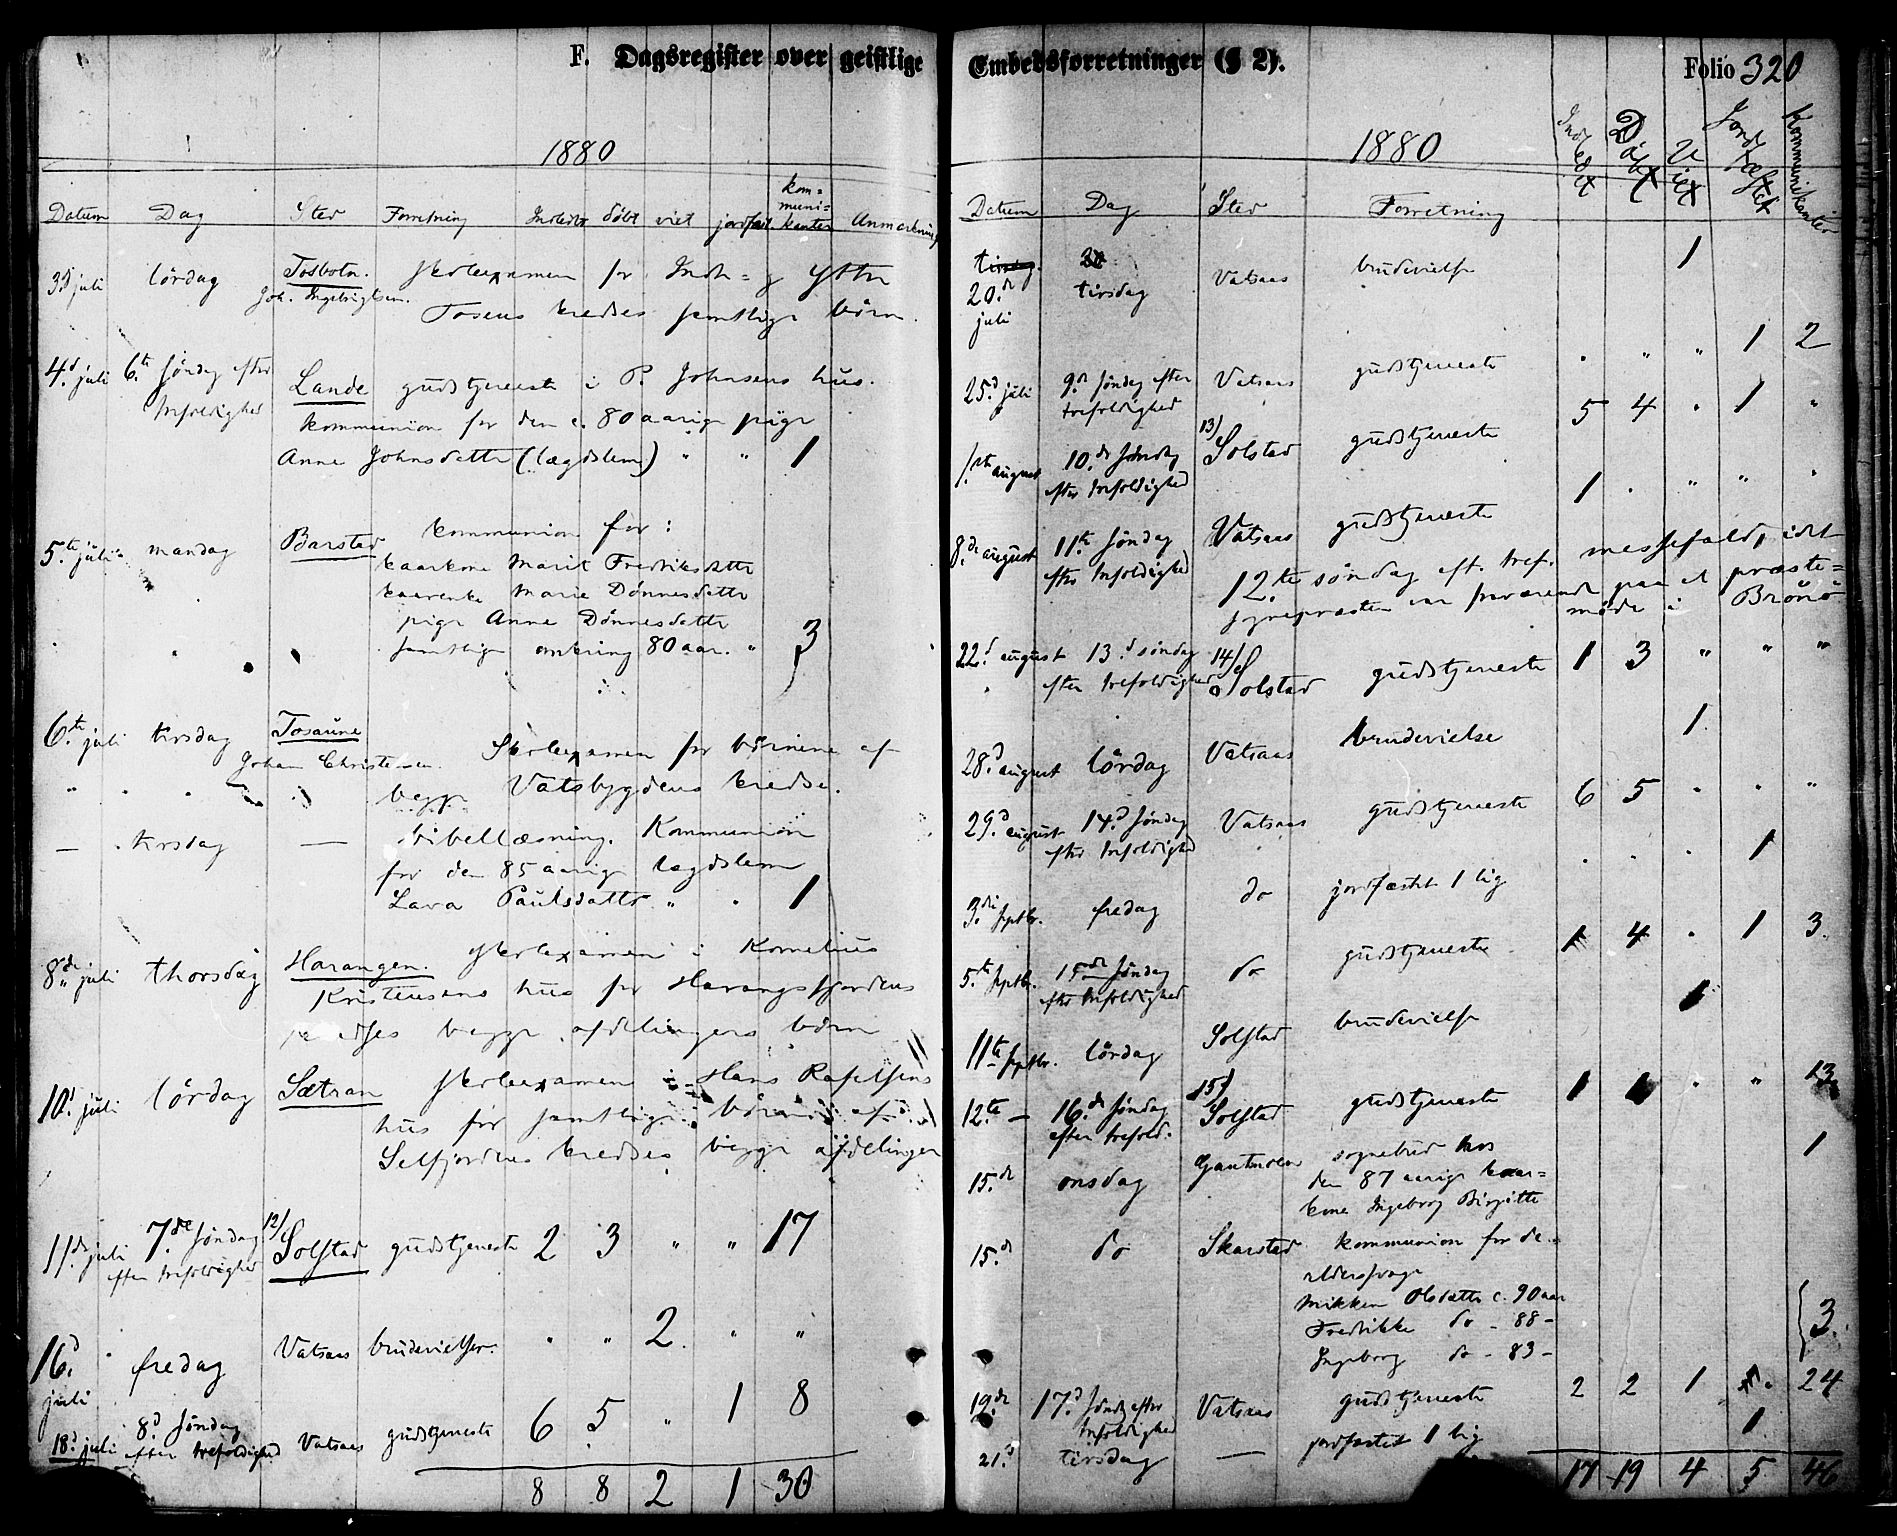 F. Dagsregister over geistlige
1880
Datum Dag Sted Forretning Indledt døbt viet jordfæst. kom=muni=kanter Anmærkning
3d juli lördag Tosbotn. Joh. Ingebrigtsen. skolexamen for Indre= og Yttre
Tosens kredses samtlige börn.
4d juli 6.te söndag efter trefoldighed Lande gudstjeneste i P. Johnsens hus.
kommunion for den c. 80 aarige pige
Anne Johnsdatter (lægdslem) " " 1
5.te juli mandag Barstad kommunion for:
kaarkone Marit Fredriksdatter
kaarenke Marie Dønnesdatter
pige Anne Dønnesdatter
samtlige omkring 80 aar. " 3
6.te juli tirsdag Tosaune Johan Christensen. Skolexamen for börnene af
begge Vatsbygdens kredse.
— tirsdag — bibellæsning. Kommunion
for den 85 aarige lægdslem
Lava Paulsdatter " " 1
8.de juli thorsdag Harangen skolexamen i Kornelius
Kristensens hus for Harangsfjordens
kredses begge afdelingers börn
10.d juli lördag Sætran skolexamen i Hans Rafelsens
hus for samtlige börn af
Selfjordens kredses begge afdelinger
11.d juli 7.de söndag efter trefoldighed 12) Solstad gudstjeneste 2 3 " " 17
16.d juli fredag Vatsaas brudevielser. " " 2. " "
18.d juli 8.d söndag efter trefoldighed Vatsaas gudstjeneste 6 5 " 1 8
8 8 2 1 30
Embedsforretninger (§ 2). Folio 320
1880
Datum Dag Sted Forretning Indledet Döbt Viet Jordfæstet Kommunikanter
20.de juli tirsdag Vatsaas brudevielse 1
25.d juli 9.d söndag efter trefoldighed Vatsaas gudstjeneste " " " 1 2
1.ste august 10.de söndag efter trefoldighed 13) Solstad gudstjeneste 5 4 " 1 "
8.de august 11.te söndag efter trefoldighed Vatsaas gudstjeneste 1 " " " "
12.te söndag eft. tref. messefald, idet
sognepræsten var fraværende paa et præste=
möde i Brönö
22.d august 13.d söndag efter trefoldighed 14) Solstad gudstjeneste 1 3 " " "
28.d august lördag Vatsaas brudevielse 1.
29.d august 14.d söndag efter trefoldighed Vatsaas gudstjeneste 6 5 " " "
3.die septbr. fredag do jordfæstet 1 lig " " " 1
5.te septbr. 15de söndag efter trefoldighed do gudstjeneste 1 4 " 1 3.
11te septbr. lördag Solstad brudevielse 1
12.te — 16.de söndag efter trefold: 15) Solstad gudstjeneste 1 1 " " 13
15.de onsdag sognebud hos 1
den 87 aarige kaar=
kone Ingeborg Birgitte
15.de do Skarstad kommunion for de
aldersvage
Mikken Olsdatter c. 90 aar
Fredrikke do - 88 -
Ingeborg do - 83 - 3.
19.de 17.d söndag efter trefoldighed Vatsaas gudstjeneste 2 2 1 " 24
21.d tirsdag — jordfæstet 1 lig 1
17 19 4 5 46